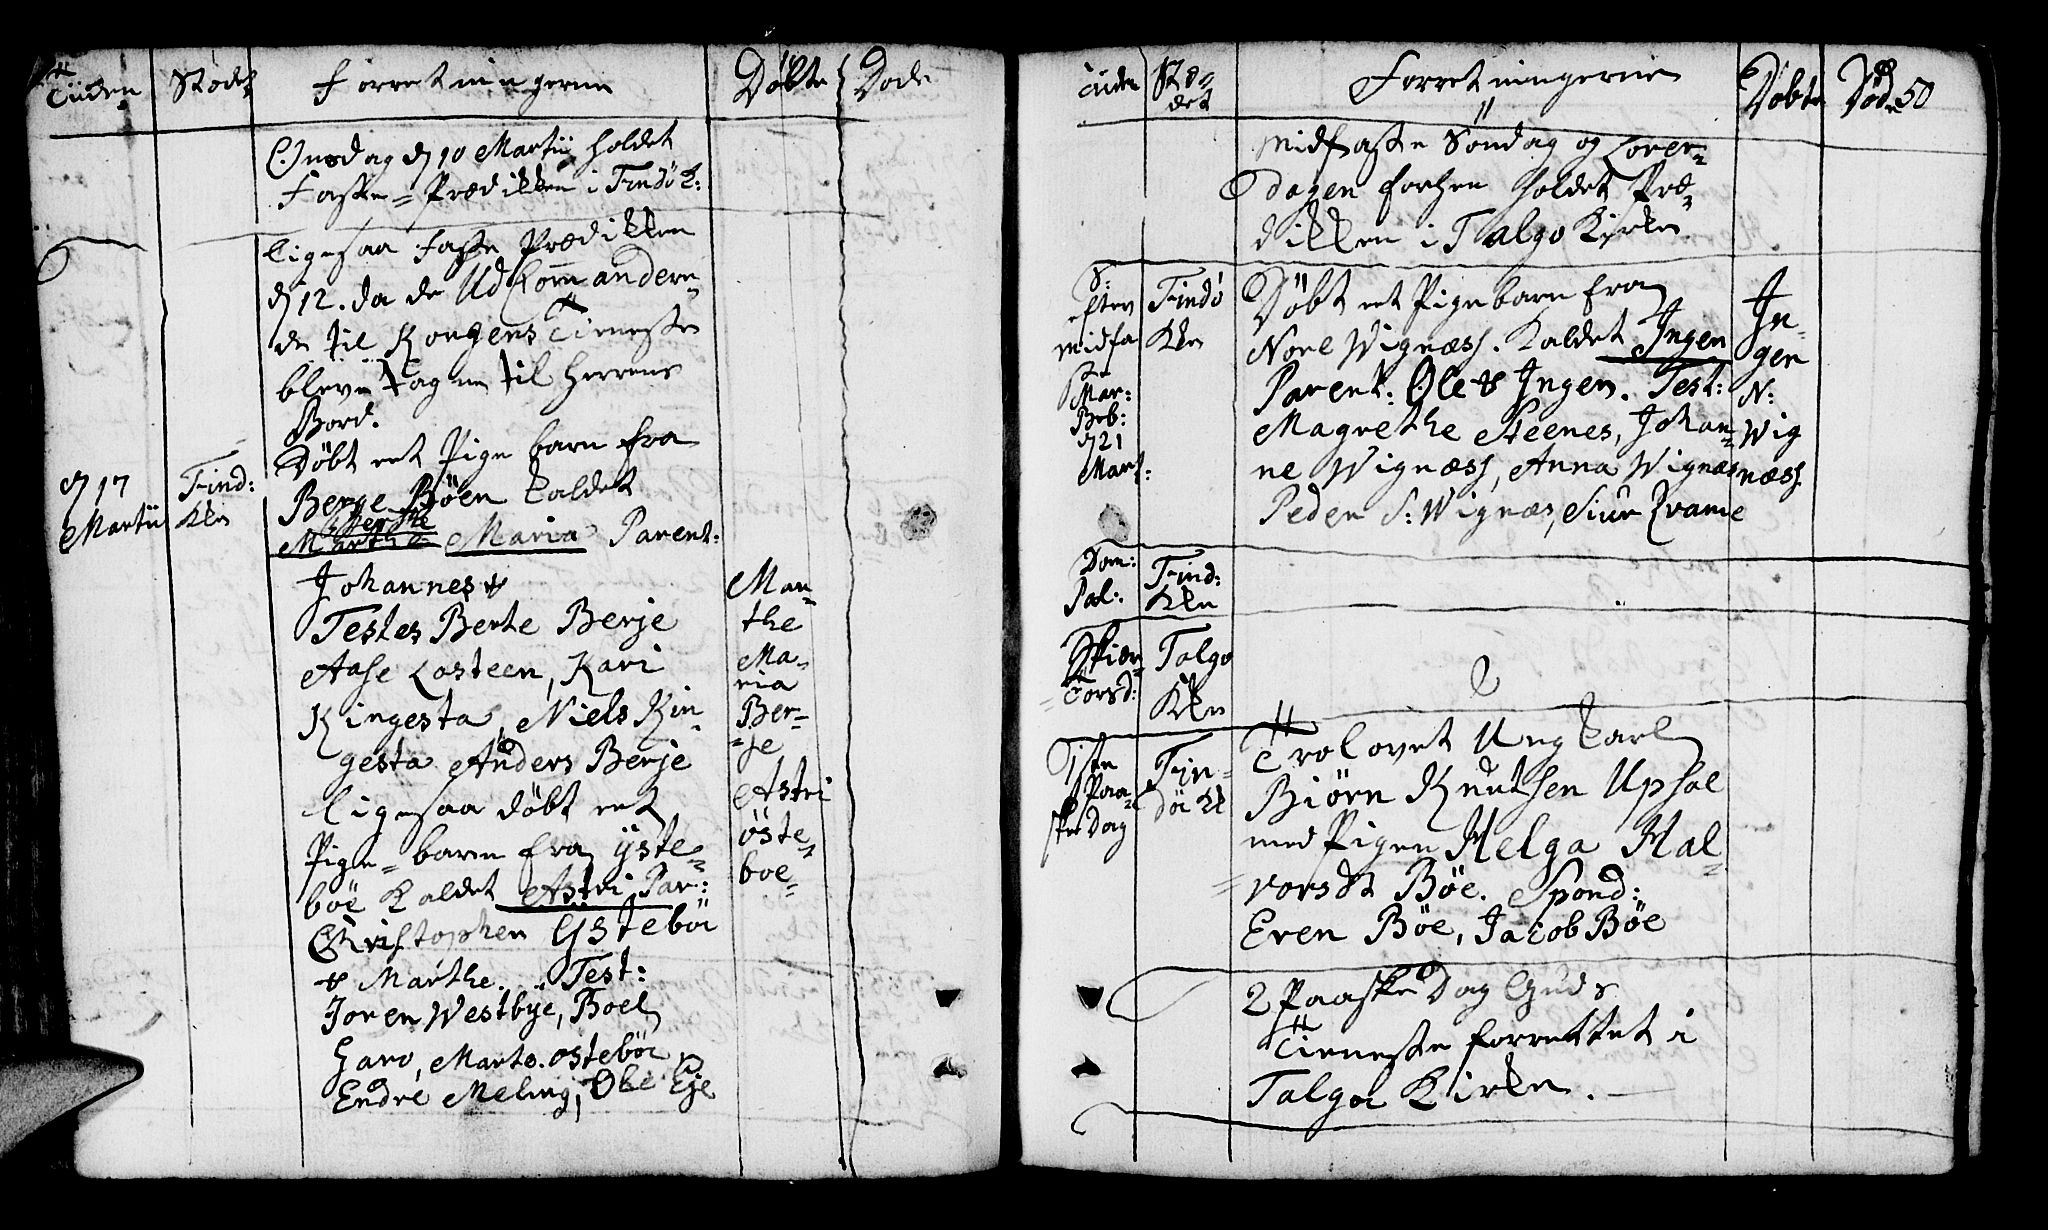 Tiiden Stødet Forretningerne Døbte Døde
Onsdag d 10 Martii holdet
Faste=Prædikken i Findø K:
ligesaa Faste Prædikken
d 12. da de Udcommandere=
de til Kongens Tieneste
bleve tagne til Herrens
Bord.
d 17 Martii
Find: Kke
Døbt eet Pige barn fra
Berge Bøen kaldet
Marthe Maria Parent:
Johannes &
Testes Berte Berje
Aase Losteen, Kari
Ringesta, Niels Rin=
gesta Anders Berje
Mar=
the
Ma=
ria
Ber=
=je
ligesaa døbt eet
Pige=barn fra ÿste=
böe Kaldet Astri, Par:
Christophen Ÿstebøe
& Marthe. Test:
Joren Westbÿe, Boel
Garo, Marte. ostebøe
Endre Meling, Ole Eje
Astri
öste=
boe=
Tiiden Stø=
det
Forretningerne Døbte Døde 50
Midfaste Søndag og Lover=
dagen forhen holdet Præ=
dikken i Talgo Kirke
S:
efter
midfa
ste
Mar:
Beb:
d 21
Mart:
Findø
Kke
Døbt eet Pigebarn fra
Nore Wignæss. Kaldet Ingen
Parent: Ole & Ingen. Test:
Magrethe Steenes, Johan=
ne Wignæss, Anna Wignæs
Peder S: Wignæs, Siur Qvame
In=
gen
N:
Wig
næss
Dom:
Pal:
Find:
Kke
Skier
Torsd:
Talgo
Kke
1ste
Paa=
ske Dag
Fin=
döe K
Trolovet Ung karl
Biörn Knutsen Upsal
med Pigen Helga Hal=
vorsdt Böe. Spond:
Even Böe, Jacob Böe
2 Paaske Dag Guds
Tieneste forrettet i
Talgøe Kirke.